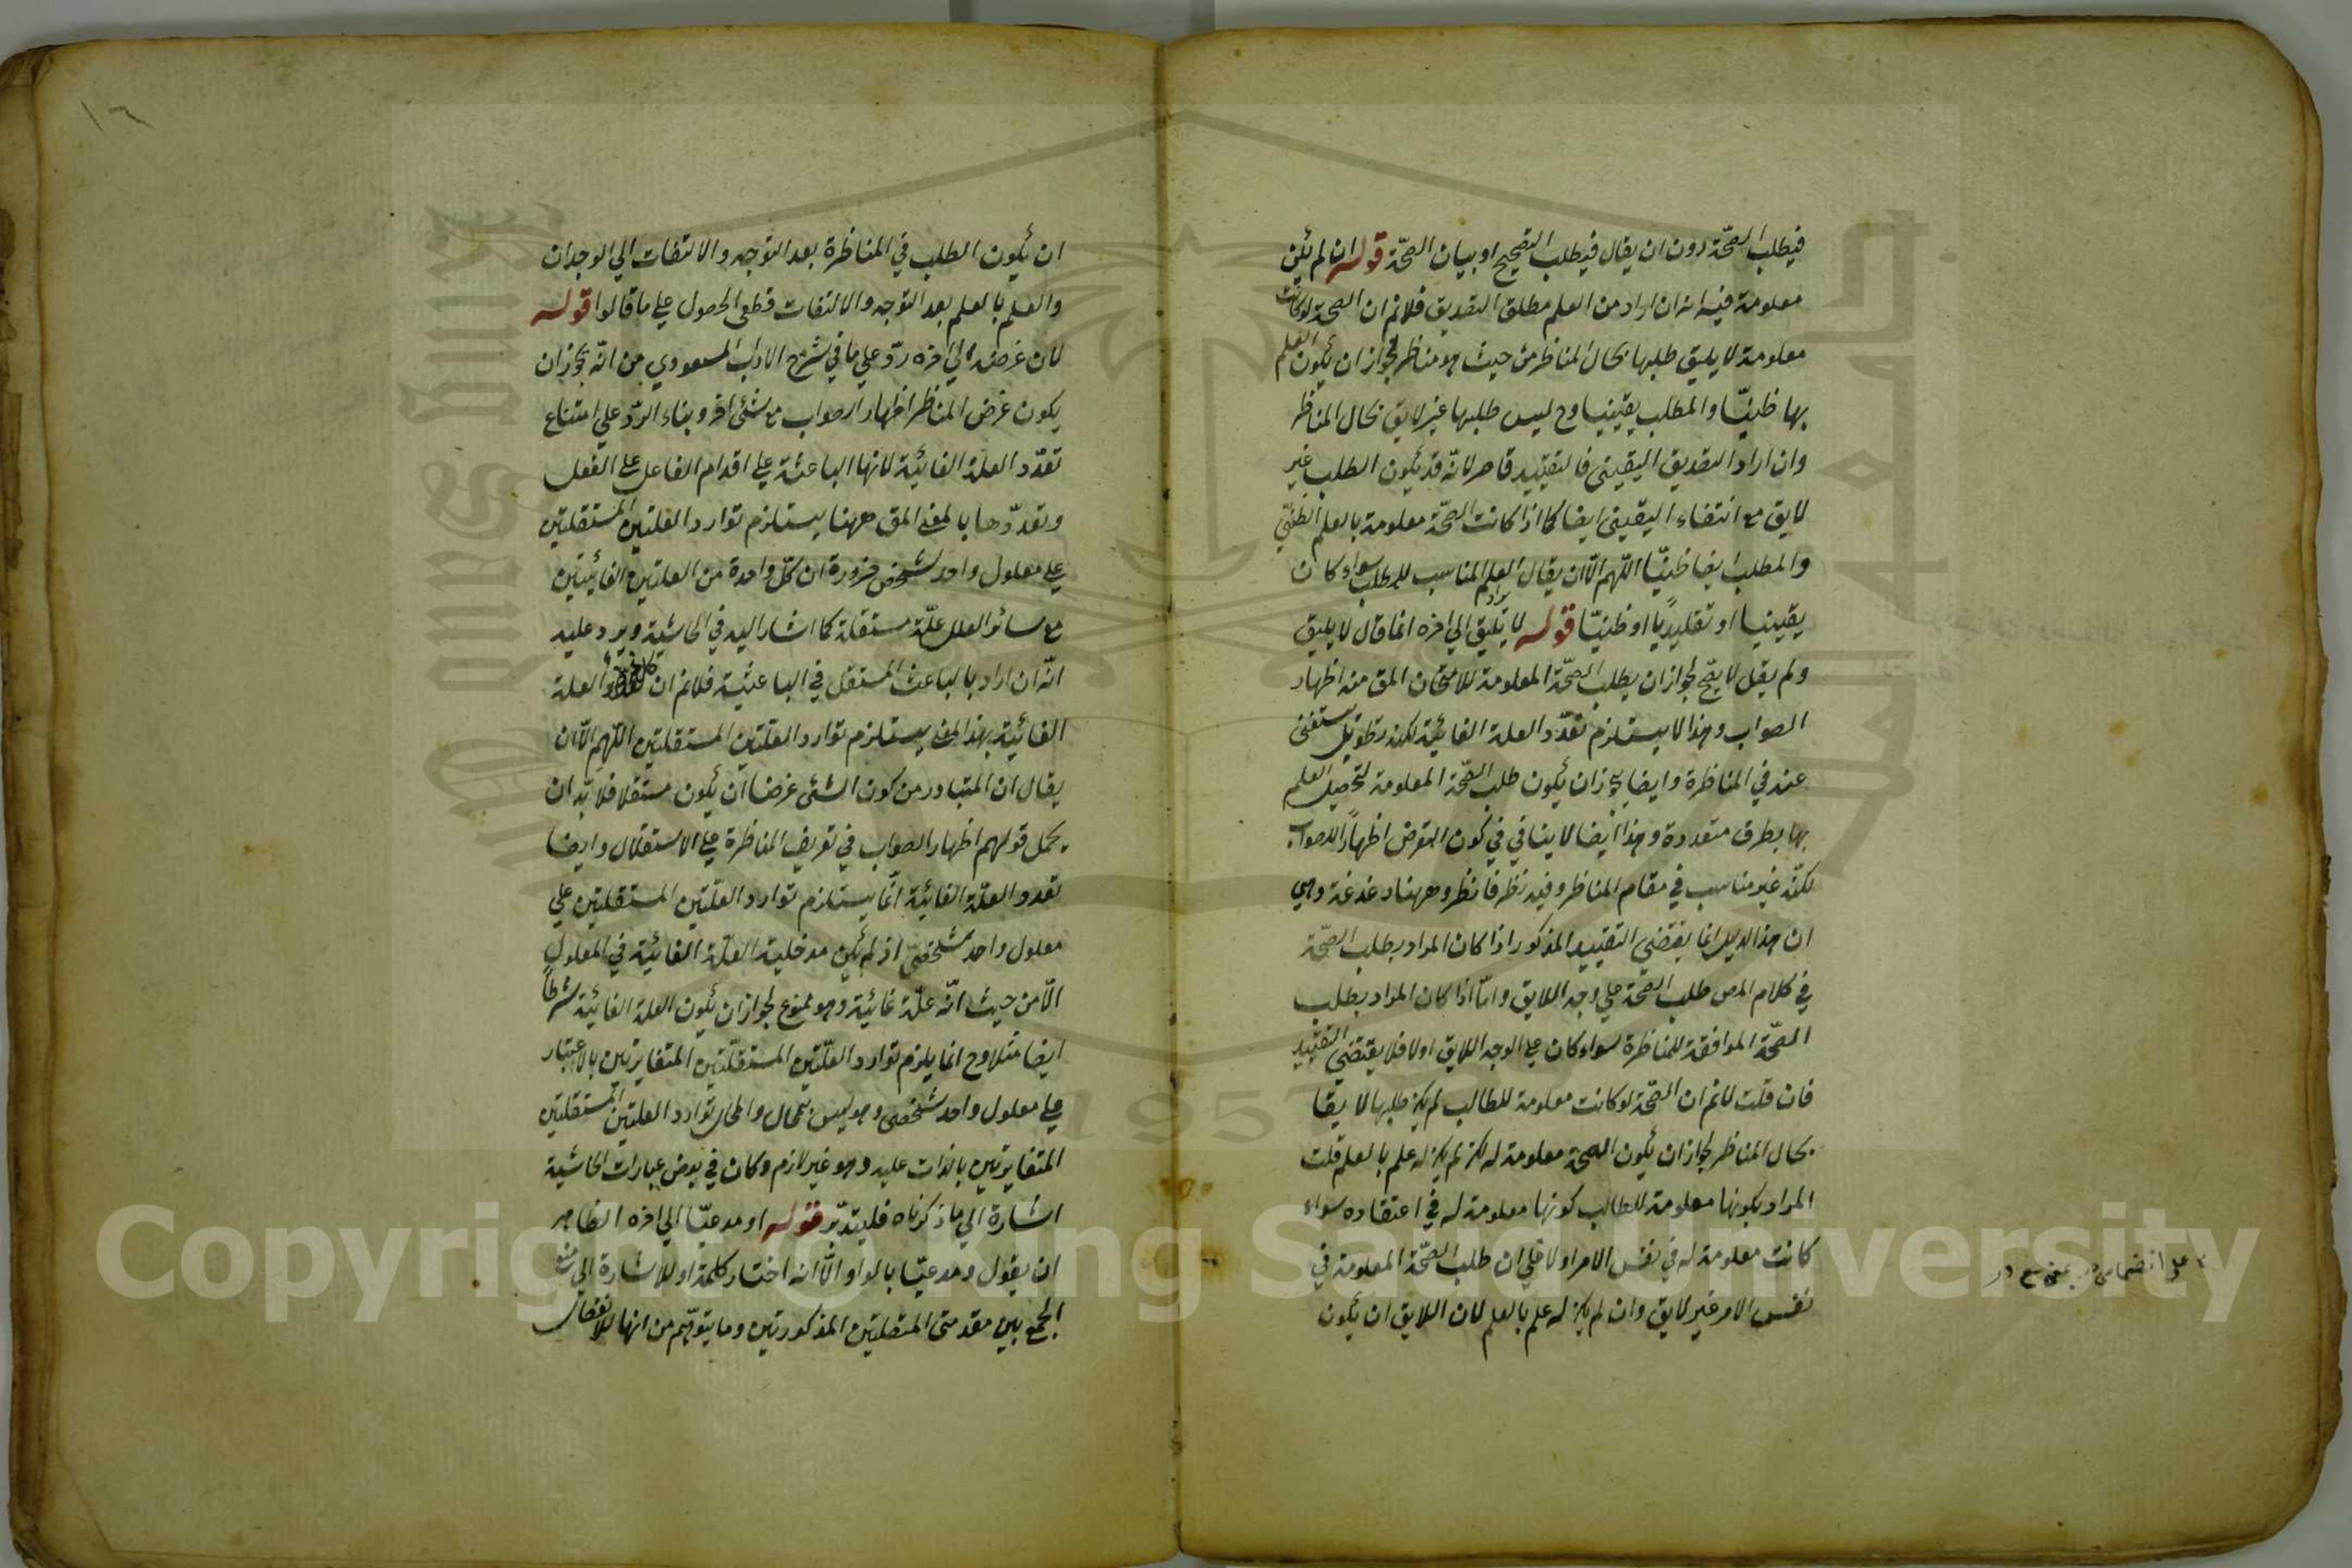 فيطلب الصحّة دون ان يقال فيطلب التصحيح او بيان الصحّة قوله ان لم يكن
معلومة فيه انه ان اراد من العلم مطلق التصديق فلانم ان الصحة لو كانت
معلومة لا يليق طلبها بحال المناظر من حيث هو مناظر لجواز ان يكون العلم
بها ظنيّا والمطلب يقينيا وح ليس طلبها غير لايق بحال المناظر
وان اراد التصديق اليقيني فالتقييد قاصر لانّه قد يكون الطلب غير
لايق مع انتفاء اليقيني ايضا كما اذا كانت الصحّة معلومة بالعلم الظنّي
والمطلب ايضا ظنيّا اللّهم الّا ان يقال العلم المناسب للمطلب سواء كان
يقينيا او تقليديّا او ظنيّا قوله لا يليق الى اخره انما قال لا يليق
ولم يقل لا يصحّ لجواز ان يطلب الصحّة المعلومة للامتحان المق منه اظهار
الصواب وهذا لا يستلزم تعدّد العلة الغائيّة لكنه تطويل مستغنى
عنه في المناظرة وايضا يجوز ان يكون طلب الصّحّة المعلومة لتحصيل العلم
بها بطرق متعددة وهذا ايضا لا ينافي في كون الغرض اظهاراً للصواب
لكنّه غير مناسب في مقام المناظر وفيه نظر فانظر وههنا دغدغة وهي
ان هذا الدليل انما يقتضي التقييد المذكور اذا كان المراد بطلب الصحّة
في كلام المص طلب الصّحة على وجه اللايق وامّا اذا كان المراد بطلب
الصحّة الموافقة للمناظرة سواء كان على الوجه اللايق اولا فلا يقتضي التقييد
فان قلت لانم ان الصّحّة لو كانت معلومة للطالب لم يكن طلبها لايقا
بحال المناظر لجواز ان يكون الصحة معلومة له لكن لم يكن له علم بالعلم قلت
المراد بكونها معلومة للطالب كونها معلومة له في اعتقاده سواء
كانت معلومة له في نفس الامر اولا على ان طلب الصّحّة المعلومة في
نفس الامر غير لايق وان لم يكن له علم بالعلم لان اللايق ان يكون
١٦
ان يكون الطلب في المناظرة بعد التوجه والالتفات الى الوجدان
والعلم بالعلم بعد التوجه والالتفات قطعي الحصول على ما قالوا قوله
لان غرضه الى اخره ردّ على ما في شرح الاداب المسعودي من انّه يجوز ان
يكون غرض المناظر اظهار الصواب مع شئ اخر وبناء الردّ على امتناع
تعدّد العلة الغائيّة لانها الباعثة على اقدام الفاعل على الفعل
وتعدّدها بالمعنى المق ههنا يستلزم توارد العلتين المستقلتين
على معلول واحد شخصي ضرورة ان كلّ واحدة من العلتين الغائيتين
مع سائر العلل علّة مستقلة كما اشار اليه في الحاشية ويرد عليه
انّه ان اراد بالباعث المستقل في الباعثية فلانم ان تعدد العلة
الغائيّة بهذا المعنى يستلزم توارد العلّتين المستقلتين اللّهم الّا ان
يقال ان المتبادر من كون الشئ غرضا ان يكون مستقلا فلا بدّ ان
يحمل قولهم اظهار الصواب في تعريف المناظرة على الاستقلال وايضا
تعدد العلّة الغائيّة انّما يستلزم توارد العلّتين المستقلتين على
معلول واحد شخصيّ اذ لم يكن مدخلية العلّة الغائيّة في المعلول
الّا من حيث انّه علّة غائيّة وهو ممنوع لجواز ان يكون العلة الغائيّة شرطاً
ايضا مثلا وح انما يلزم توارد العلّتين المستقلّتين المتغايرتين بالاعتبار
على معلول واحد شخصي وهو ليس بمحال والمحال توارد العلتين المستقلتين
المتغايرتين بالذات عليه وهو غير لازم وكان في بعض عبارات الحاشية
اشارة الى ما ذكرناه فليتدبّر قوله او مدعيّا الى اخره الظاهر
ان يقول ومدعيّا بالواو الّا انه اختار كلمة او للاشارة الى منع
الجمع بين مقدمتي المتصلتين المذكورتين وما يتوهّم من انها للانفصال
Copyright © King Saud University
1957